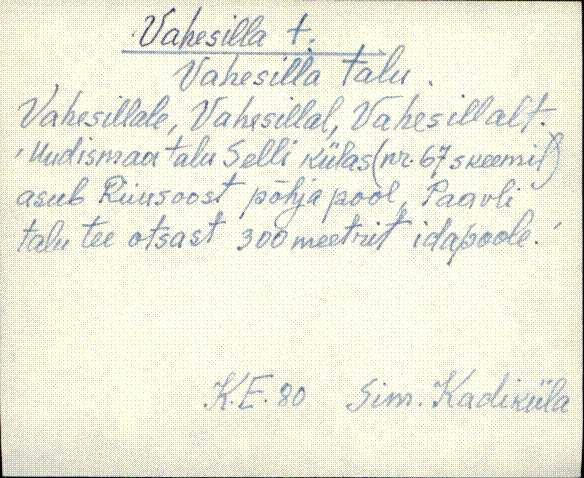 Vahesilla t.
Vahesilla talu.
Vahesillale, Vahesillal, Vahesillalt.
'Uudismaa talu Selli külas (nr. 67 skeemil)
asub Riiusoost põhja pool, Paavli
talu tee otsast 300 meetrit idapoole.'
K.E. 80 Sim. Kadiküla